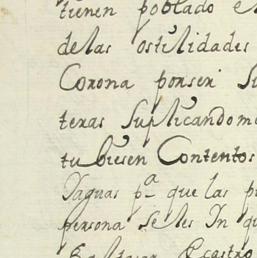 tienen poblado e
delas ostilidades
Corona por ser su
teras suplicandome
tubiesen Contentos
Yaguas pª que las p
persona se les In qu
Baltasar Castro